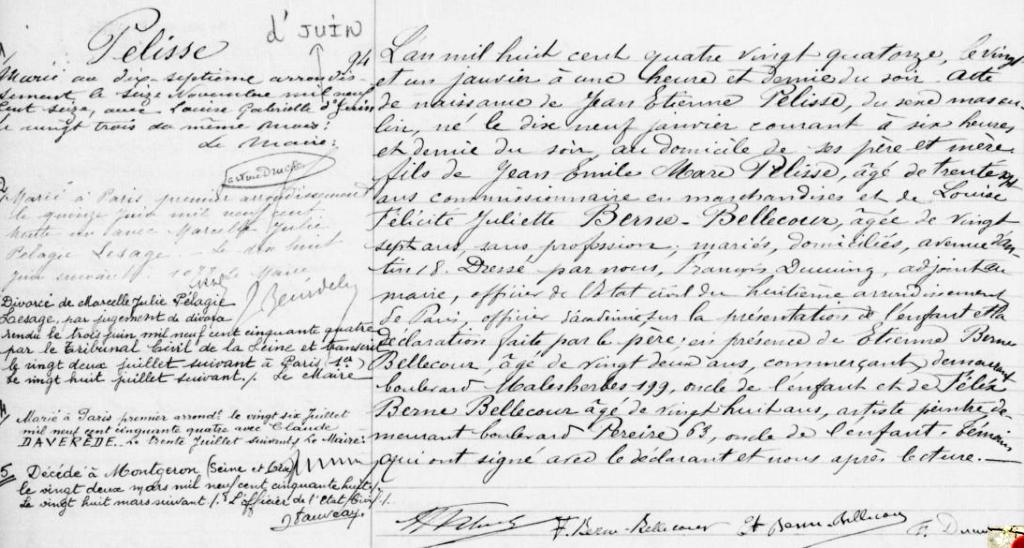 Pelisse
d'JUIN
94
Marié au dix-septième arrondis-
sement le seize Novembre mil neuf
cent seize, avec Louise Gabrielle d'Juin
le vingt trois du même mois.
Le Maire:
2/ Marié à Paris, premier arrondissement
le quinze juin mil neuf cent
trente un avec Marcelle Julie
Pélagie Lesage. Le dix huit
juin suivant. Le Maire
Divorcé de Marcelle Julie Pélagie
Lesage, par jugement de divorce
rendu le trois juin mil neuf cent cinquante quatre
par le Tribunal Civil de la Seine et transcrit
le vingt deux juillet suivant à Paris
Le vingt huit juillet suivant./. Le Maire
4 Marié à Paris premier arrondt le vingt six Juillet
mil neuf cent cinquante quatre avec Claude
DAVEREDE. Le trente Juillet suivant. Le Maire:
5 Décédé à Montgeron (Seine et Oise)
le vingt deux mars mil neuf cent cinquante huit./.
Le vingt huit mars suivant /. L'officier de l'Etat Civil /.
L'an mil huit cent quatre vingt quatorze, le vingt
et un janvier à une heure et demie du soir Acte
de naissance de Jean Etienne Pelisse, du sexe mascu
lin, né le dix neuf janvier courant à six heures
et demie du soir, au domicile de ses père et mère,
fils de Jean Emile Marc Pelisse, âgé de trente
ans commissionnaire en marchandises et de Louise
Félicité Juliette Berne-Bellecour, âgée de vingt
sept ans, sans profession; mariés, domiciliés, avenue d'An
tin 18. Dressé par nous, François adjoint au
maire, officier de l'Etat civil du huitième arrondissement
de Paris, officier d'académie, sur la présentation de l'enfant et la
déclaration faite par le père; en présence de Etienne Berne
Bellecour, âgé de vingt deux ans, commerçant, demeurant
boulevard Malesherbes 199, oncle de l'enfant et de Félix
Berne Bellecour âgé de vingt huit ans, artiste peintre de-
meurant boulevard Pereire 63, oncle de l'enfant. Témoins
qui ont signé avec le déclarant et nous après lecture.
F. Berne-Bellecour Et Berne-Bellecour